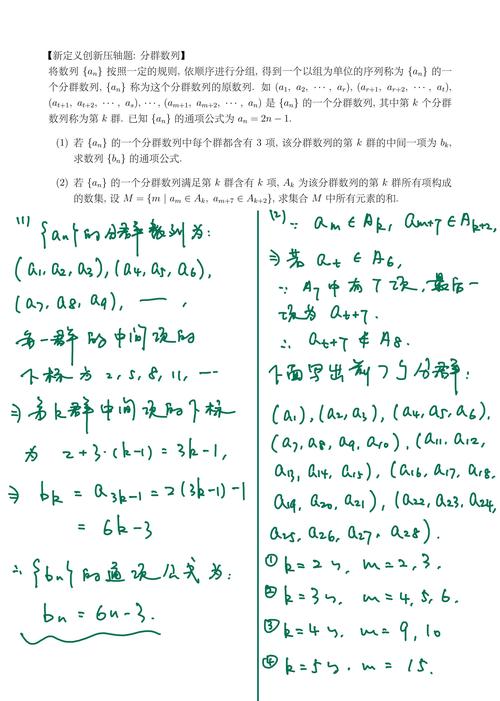 【新定义创新压轴题: 分群数列】
将数列 {aₙ} 按照一定的规则, 依顺序进行分组, 得到一个以组为单位的序列称为 {aₙ} 的一
个分群数列, {aₙ} 称为这个分群数列的原数列. 如 (a₁, a₂, ⋯, aᵣ), (aᵣ₊₁, aᵣ₊₂, ⋯, aₜ),
(aₜ₊₁, aₜ₊₂, ⋯, aₛ), ⋯, (aₘ₊₁, aₘ₊₂, ⋯, aₙ) 是 {aₙ} 的一个分群数列, 其中第 k 个分群
数列称为第 k 群. 已知 {aₙ} 的通项公式为 aₙ = 2n − 1.
(1) 若 {aₙ} 的一个分群数列中每个群都含有 3 项, 该分群数列的第 k 群的中间一项为 bₖ,
求数列 {bₙ} 的通项公式.
(2) 若 {aₙ} 的一个分群数列满足第 k 群含有 k 项, Aₖ 为该分群数列的第 k 群所有项构成
的数集, 设 M = {m | aₘ ∈ Aₖ, aₘ₊₇ ∈ Aₖ₊₂}, 求集合 M 中所有元素的和.
(1) {aₙ}的分群数列为:
(a₁, a₂, a₃), (a₄, a₅, a₆),
(a₇, a₈, a₉), ⋯,
每一群的中间项的
下标为 2, 5, 8, 11, ⋯
⇒ 第k群中间项的下标
为 2+3·(k-1) = 3k-1,
⇒ bₖ = a₃ₖ₋₁ = 2(3k-1)-1
= 6k-3
∴ {bₙ}的通项公式为:
bₙ = 6n-3.
(2) ∵ aₘ ∈ Aₖ, aₘ₊₇ ∈ Aₖ₊₂,
⇒ 若 aₜ ∈ A₆,
∵ A₇中有7项, 最后一
项为 aₜ₊₇.
∴ aₜ₊₇ ∉ A₈.
下面写出前7个分群:
(a₁), (a₂, a₃), (a₄, a₅, a₆).
(a₇, a₈, a₉, a₁₀), (a₁₁, a₁₂,
a₁₃, a₁₄, a₁₅), (a₁₆, a₁₇, a₁₈,
a₁₉, a₂₀, a₂₁), (a₂₂, a₂₃, a₂₄,
a₂₅, a₂₆, a₂₇, a₂₈).
① k=2时, m=2, 3.
② k=3时, m=4, 5, 6.
③ k=4时, m=9, 10
④ k=5时, m=15.